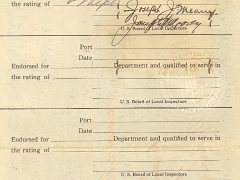 the rating of
Joseph J. Meany
U. S. Board of Local Inspectors
Port
Date
Endorsed for Department and qualified to serve in
the rating of
U. S. Board of Local Inspectors
Port
Date
Endorsed for Department and qualified to serve in
the rating of
U. S. Board of Local Inspectors